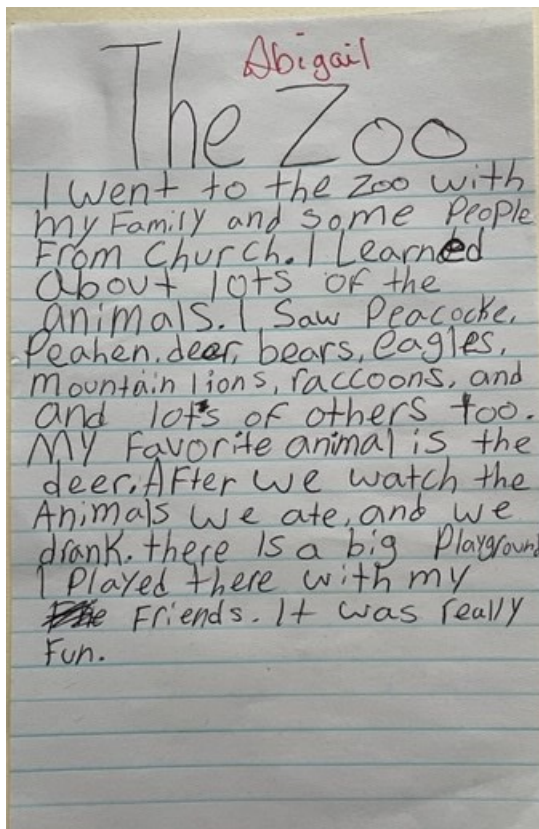 Abigail
The Zoo
I went to the zoo with
my Family and some People
From Church. I Learned
about lots of the
animals. I Saw Peacocke,
Peahen, deer, bears, eagles,
mountain lions, raccoons, and
and lots of others too.
My Favorite animal is the
deer. After we watch the
Animals we ate, and we
drank. there Is a big Playground
I Played there with my
Friends. It was really
Fun.